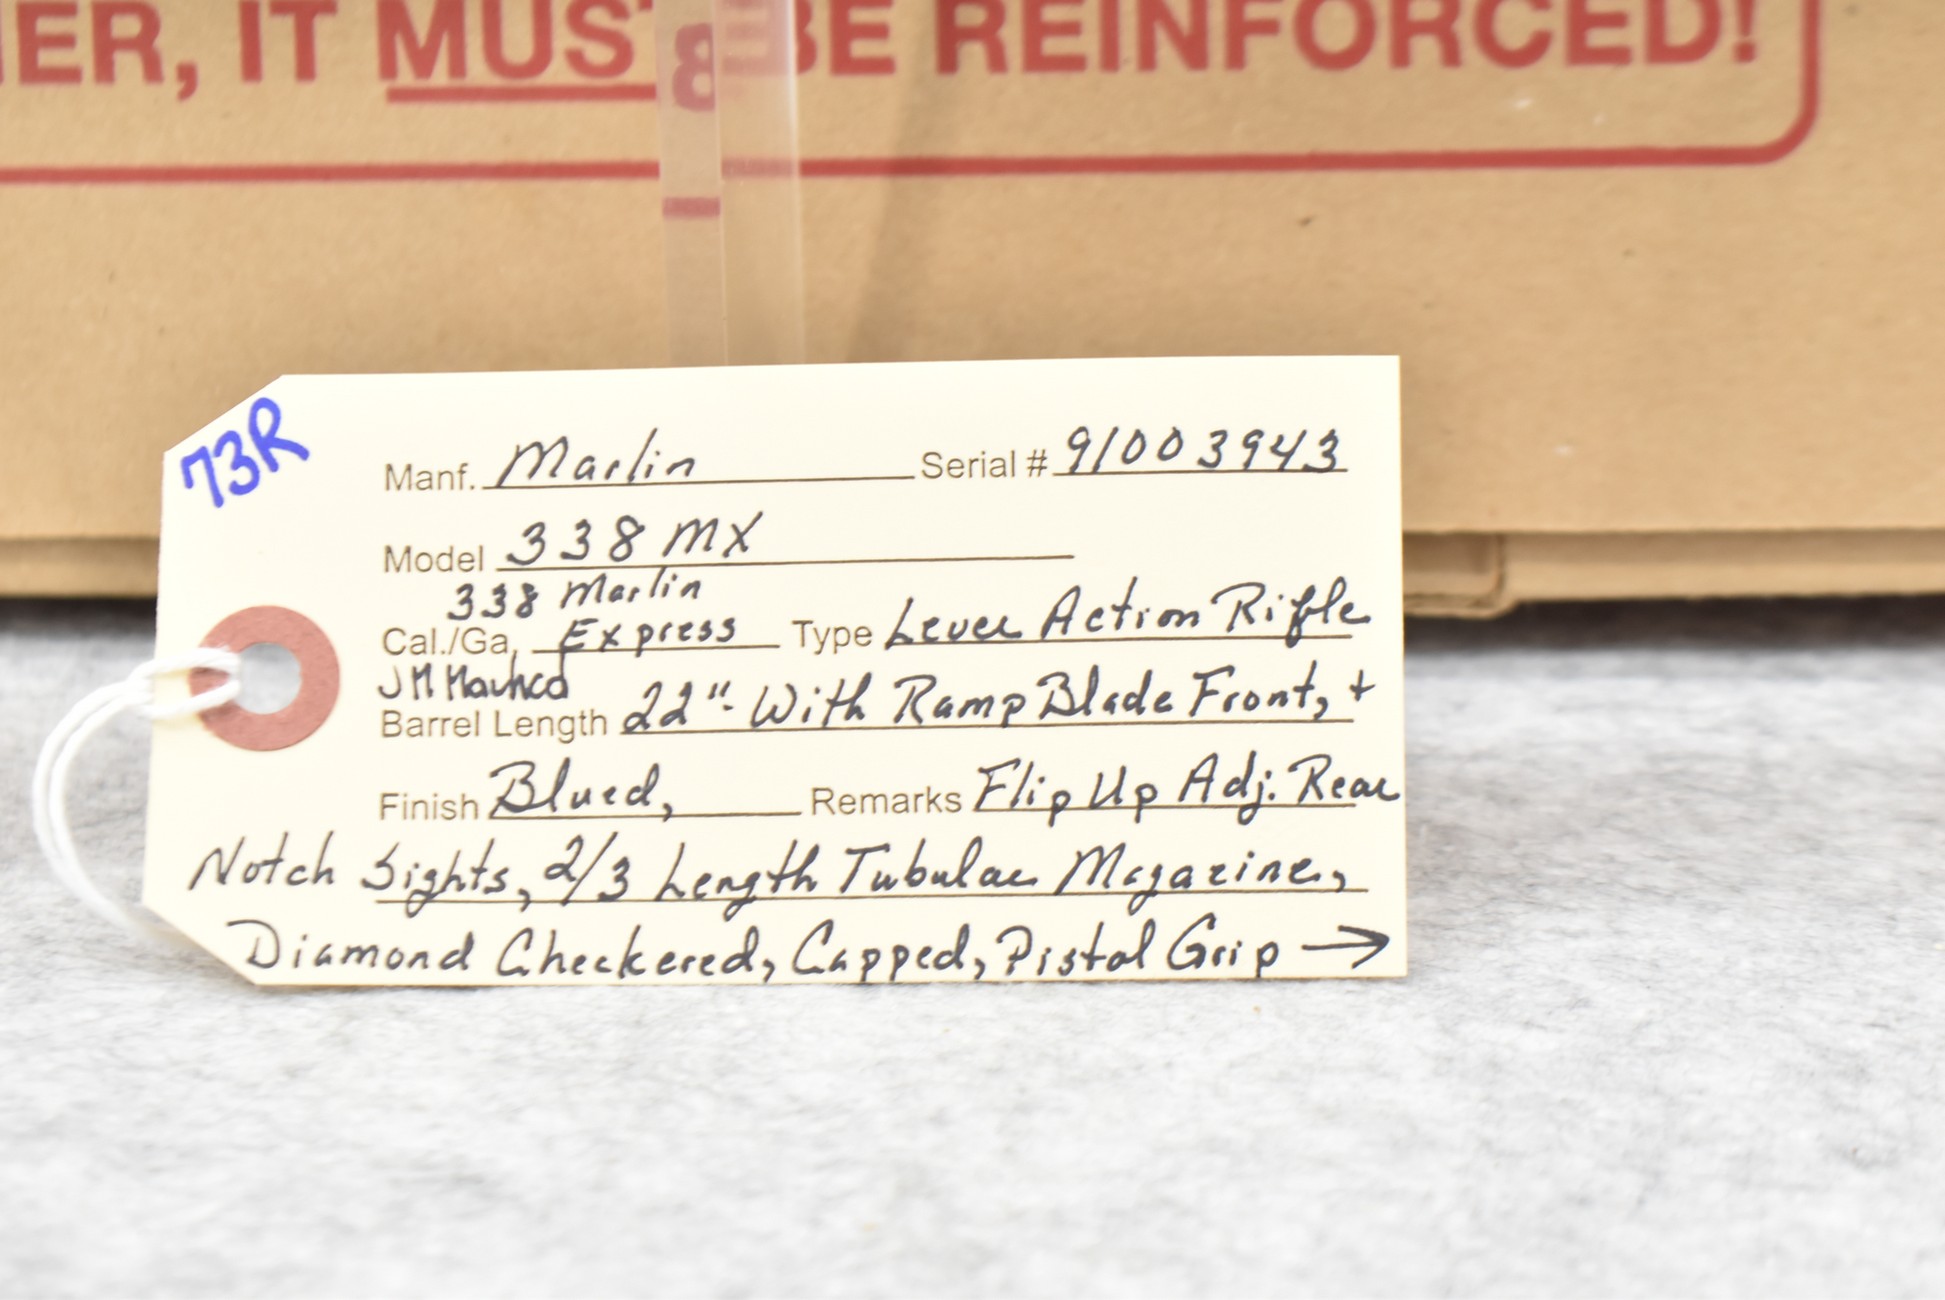 ER, IT MUST BE REINFORCED!
8
73R
Manf. Marlin Serial # 91003943
Model 338 MX
338 Marlin
Cal./Ga. Express Type Lever Action Rifle
JM Marked
Barrel Length 22" With Ramp Blade Front, +
Finish Blued, Remarks Flip Up Adj. Rear
Notch Sights, 2/3 Length Tubular Magazine,
Diamond Checkered, Capped, Pistol Grip →